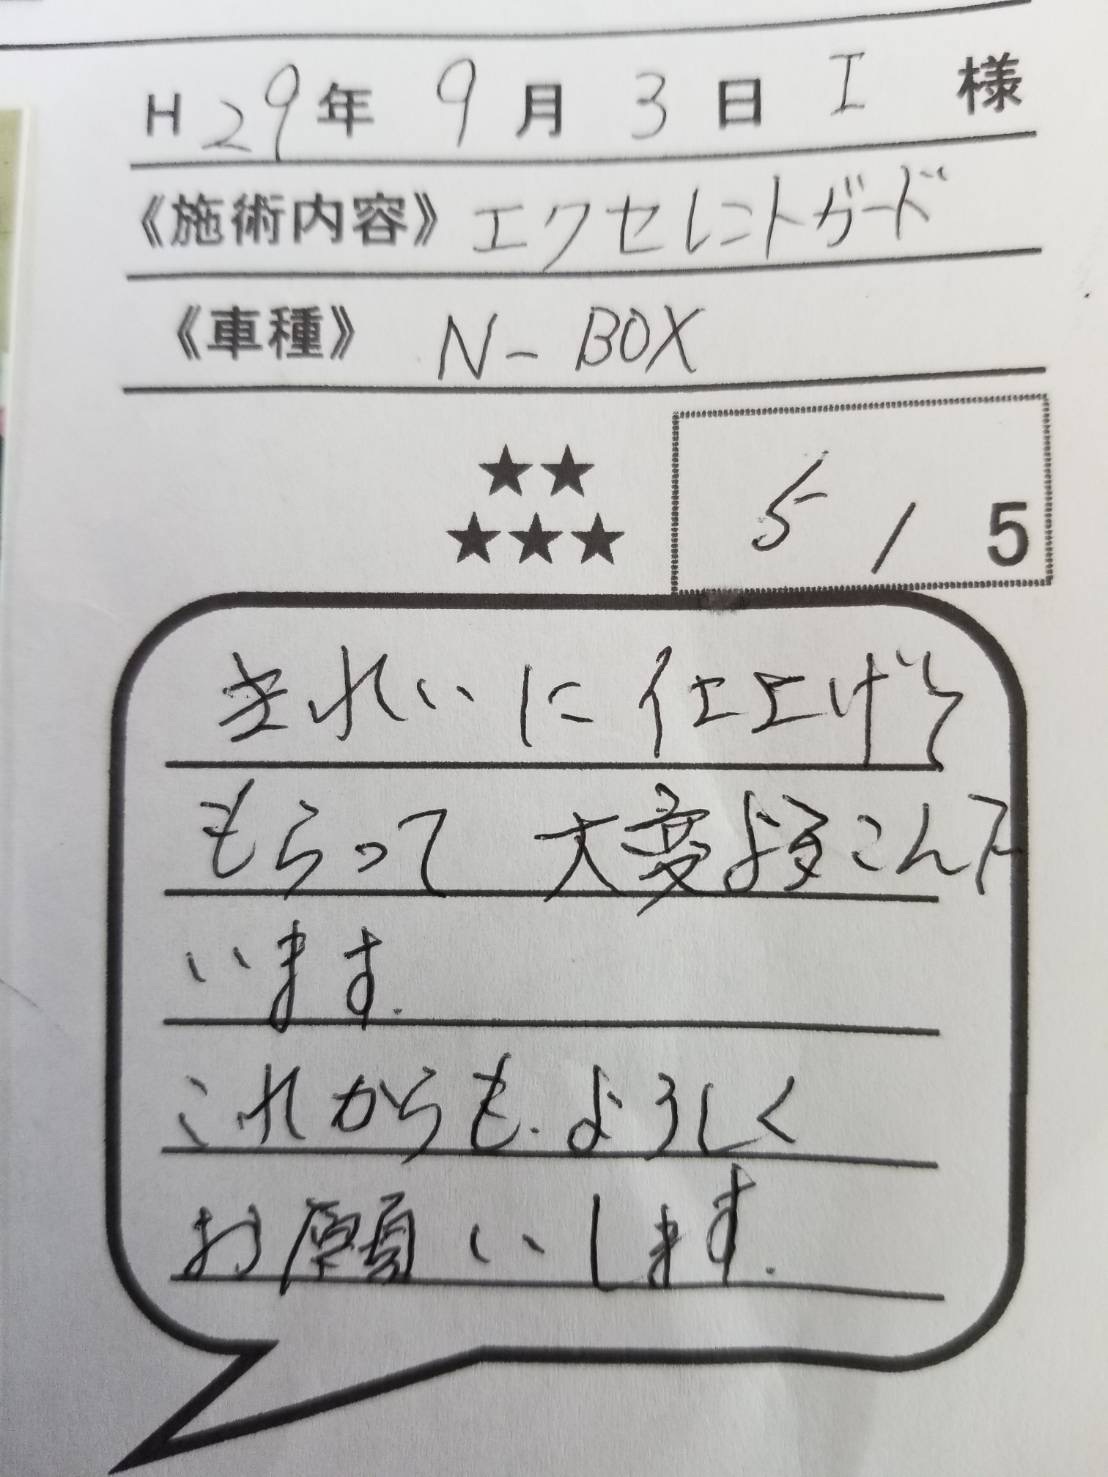 H29年 9月 3日 I 様
《施術内容》 エクセレントガード
《車種》 N-BOX
★★
★★★
5/5
きれいに仕上げて
もらって 大変よろこんで
います.
これからも.よろしく
お願いします.